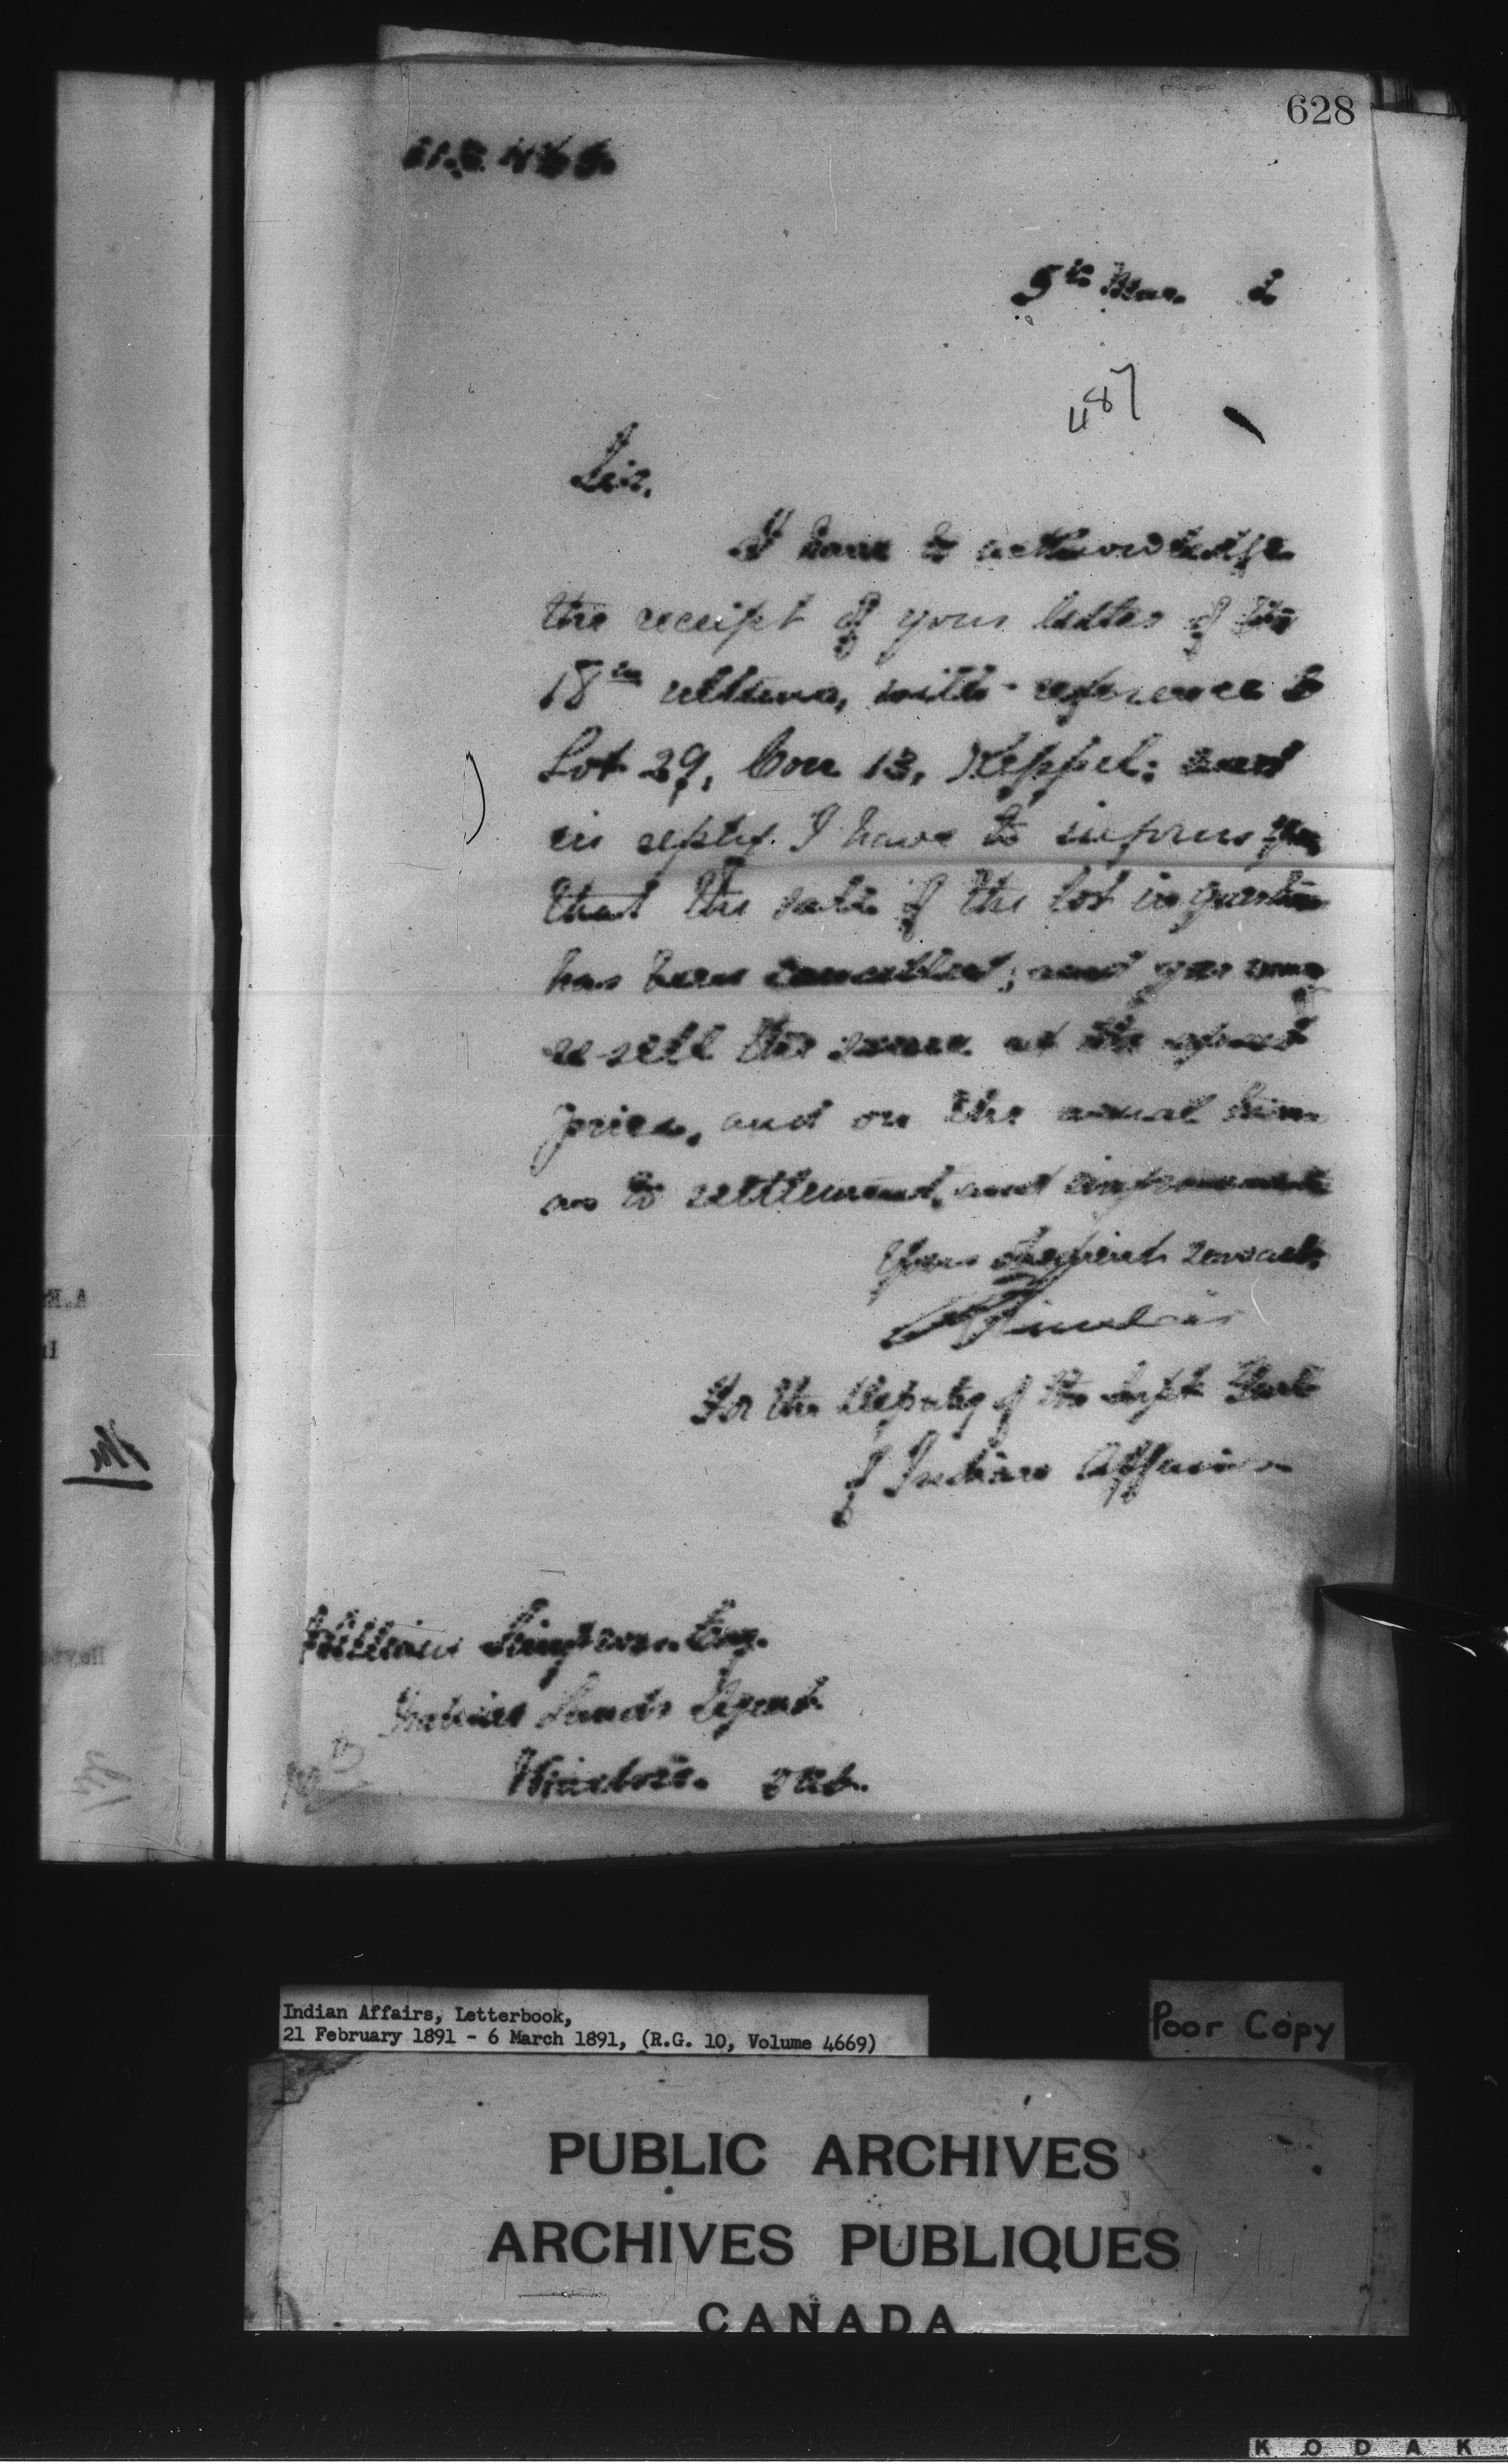 628
5th Mar. 1
487
Sir,
I have to acknowledge
the receipt of your letter of the
18th ultimo, with reference to
Lot 29, Con 13, Keppel: and
in reply I have to inform you
that the sale of the lot in question
has been cancelled; and you may
re-sell the same at the upset
price, and on the usual terms
as to settlement, and improvements
Your obedient servant,
For the Deputy of the Supt Genl
of Indian Affairs
William Simpson. Esq.
Indian Lands Agent
Wiarton. Ont.
Indian Affairs, Letterbook,
21 February 1891 - 6 March 1891, (R.G. 10, Volume 4669)
Poor Copy
PUBLIC ARCHIVES
ARCHIVES PUBLIQUES
CANADA
KODAK